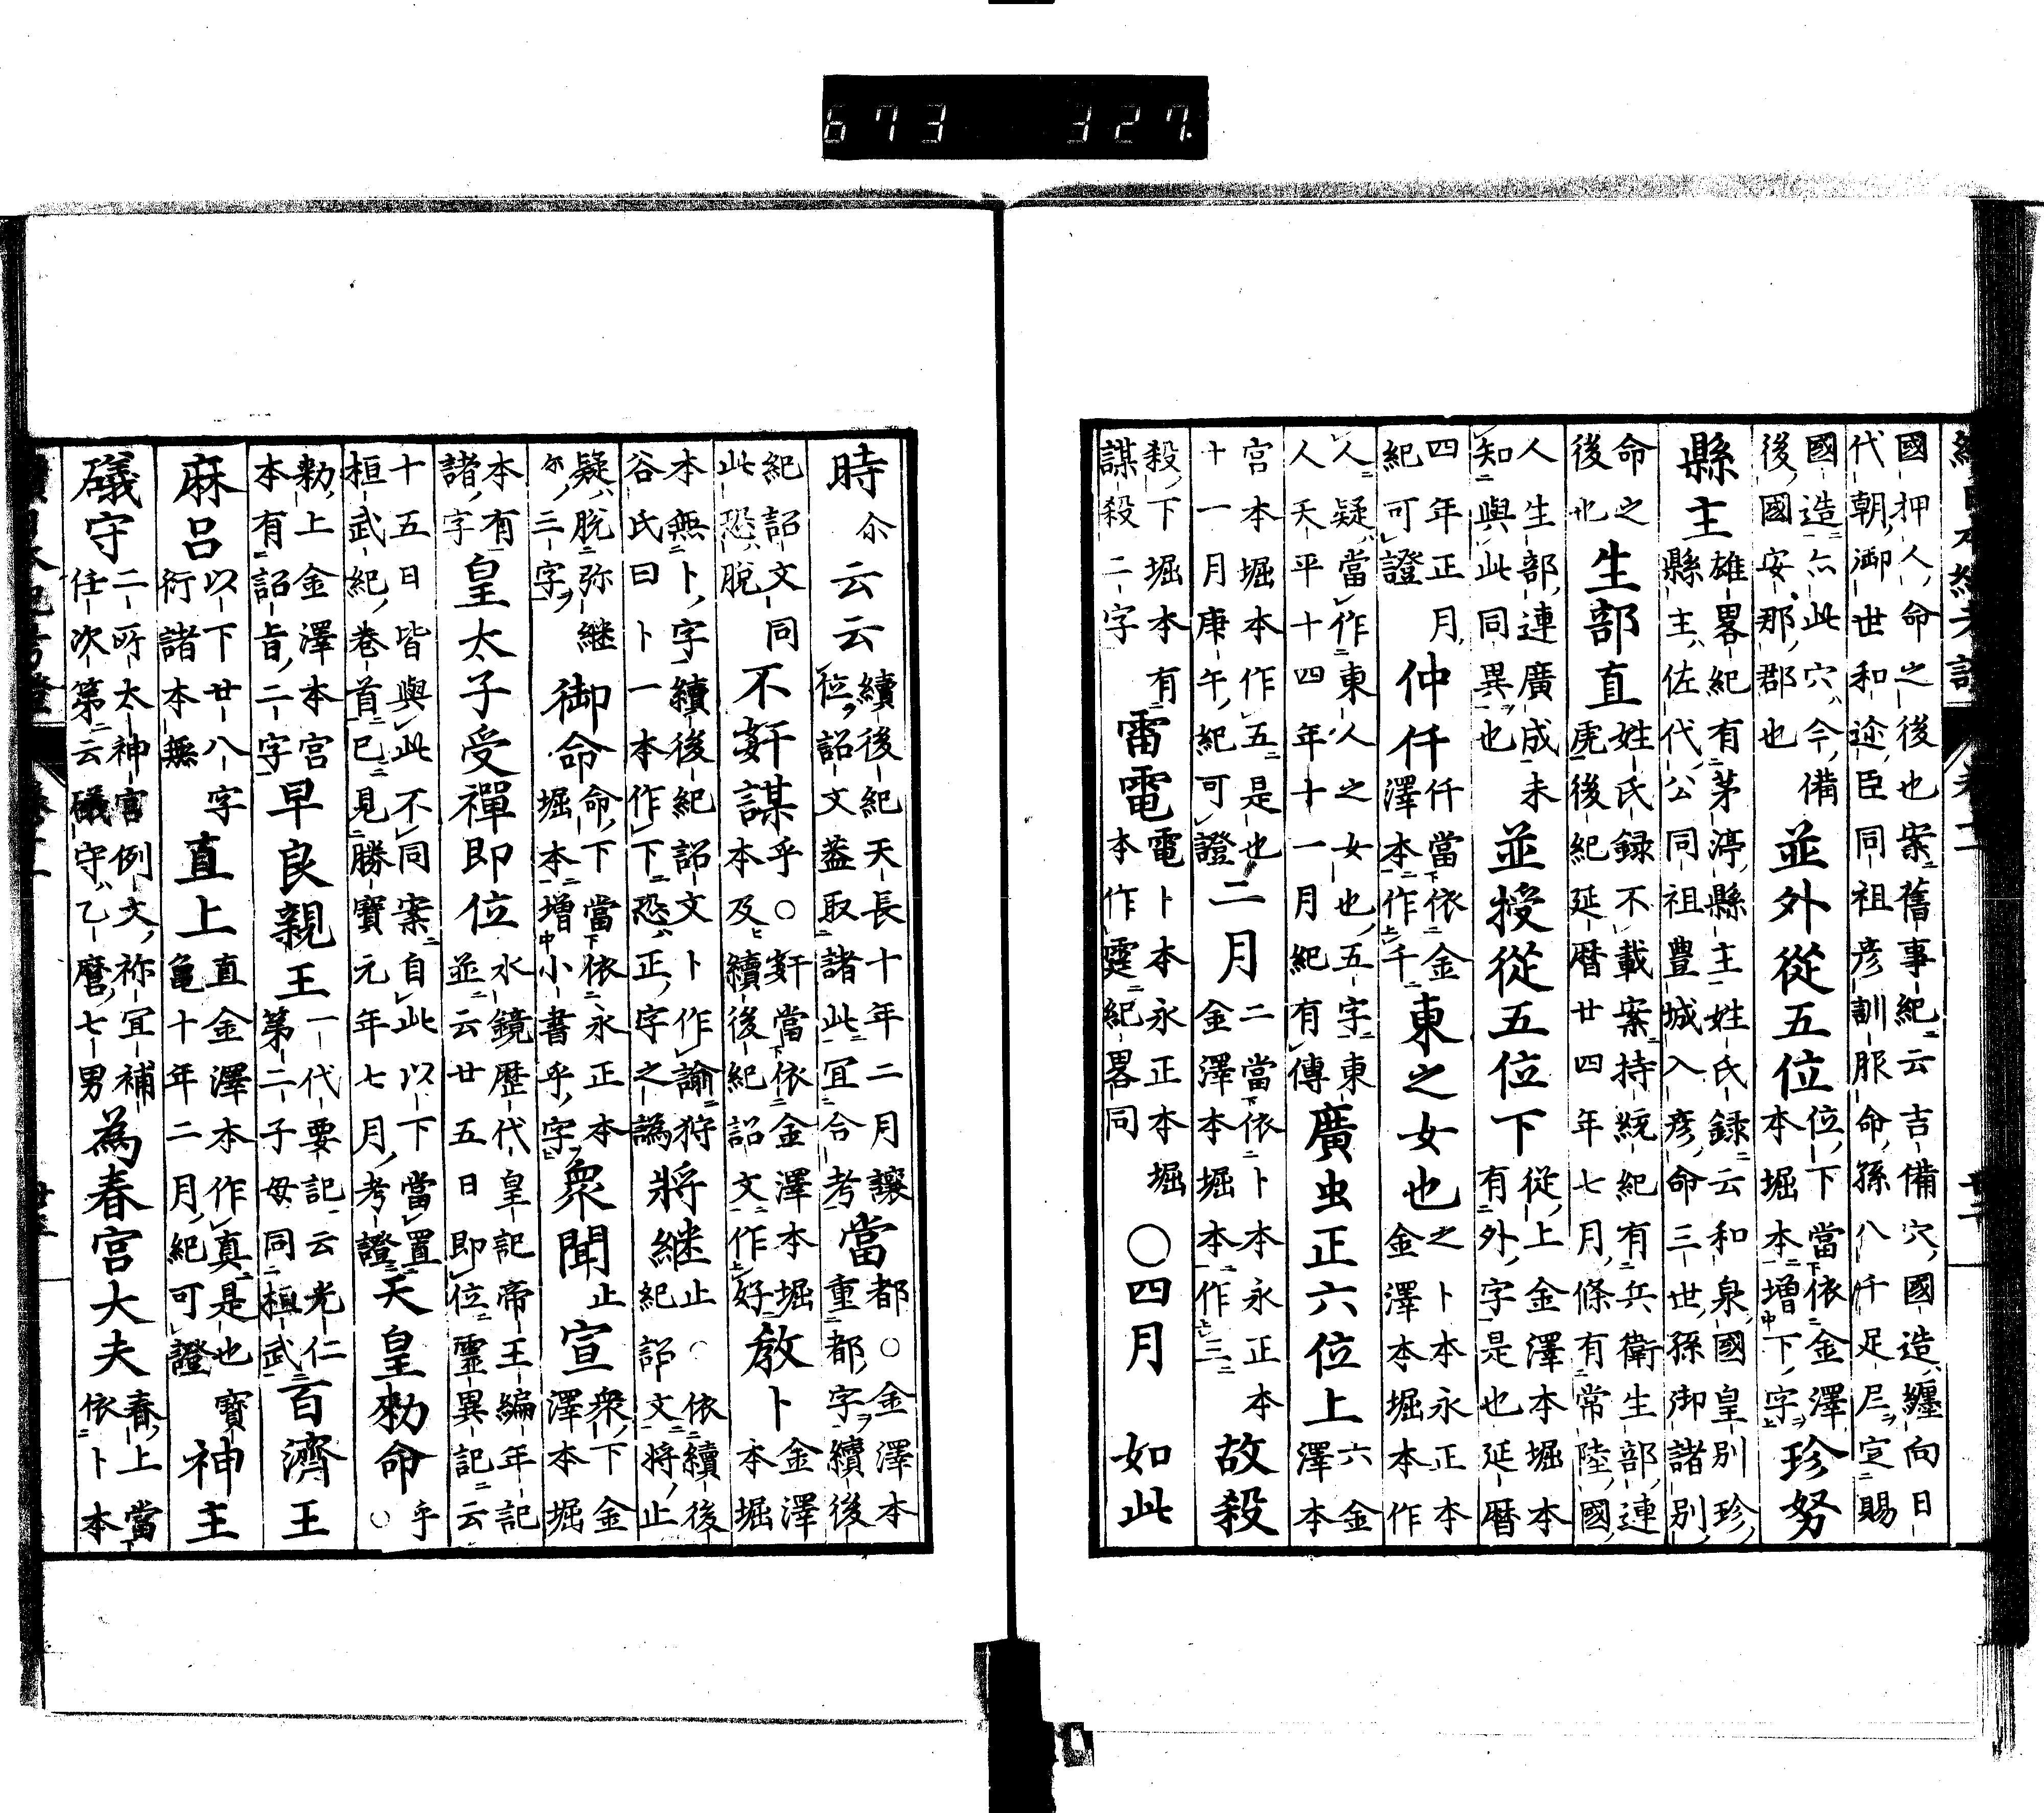 673 327.
國押人命之後也案舊事紀云吉備穴國造纏向日
代朝御世和迩臣同祖彥訓服命孫八千足尼定賜
國造亦此穴今備
後國安那郡也
並外從五位
位下當依金澤
本堀本増下字
珍努
縣主
雄畧紀有茅渟縣主姓氏録云和泉國皇別珍
縣主佐代公同祖豊城入彥命三世孫御諸別
命之
後也
生部直
姓氏録不載案持統紀有兵衛生部連
虎後紀延暦廿四年七月條有常陸國
人生部連廣成未
知與此同異也
並授從五位下
從上金澤本堀本
有外字是也延暦
四年正月
紀可證
仲仟
仟當依金
澤本作千
東之女也
之卜本永正本
金澤本堀本作
人疑當作東人之女也五字東
人天平十四年十一月紀有傳
廣虫正六位上
六金
澤本
宮本堀本作五是也
十一月庚午紀可證
二月
二當依卜本永正本
金澤本堀本作三
故殺
殺下堀本有
謀殺二字
雷電
電卜本永正本堀
本作霆紀畧同
○四月 如此
時尒云云
續後紀天長十年二月讓
位詔文葢取諸此宜合考
當都○
金澤本
重都字續後
紀詔文同
此恐脫
不奸謀
乎○奸當依金澤本堀
本及續後紀詔文作好
教卜
金澤
本堀
本無卜字續後紀詔文卜作諭狩
谷氏曰卜一本作下恐正字之譌
將継
止○依續後
紀詔文將止
疑脫弥継
尒三字
御命
命下當依永正本
堀本増小書乎字
衆聞
止
宣
衆下金
澤本堀
本有
諸字
皇太子受禪即位
水鏡歴代皇記帝王編年記
並云廿五日即位靈異記云
十五日皆與此不同案自此以下當置
桓武紀卷首已見勝寶元年七月考證
天皇勅命
乎
○
勅上金澤本宮
本有詔旨二字
早良親王
一代要記云光仁
第二子母同桓武
百濟王
麻呂
以下廿八字
衍諸本無
直上
直金澤本作真是也
亀十年二月紀可證寶
神主
礒守
二所太神宮例文祢宜補
任次第云礒守乙麿七男
為春宮大夫
春上當
依卜本